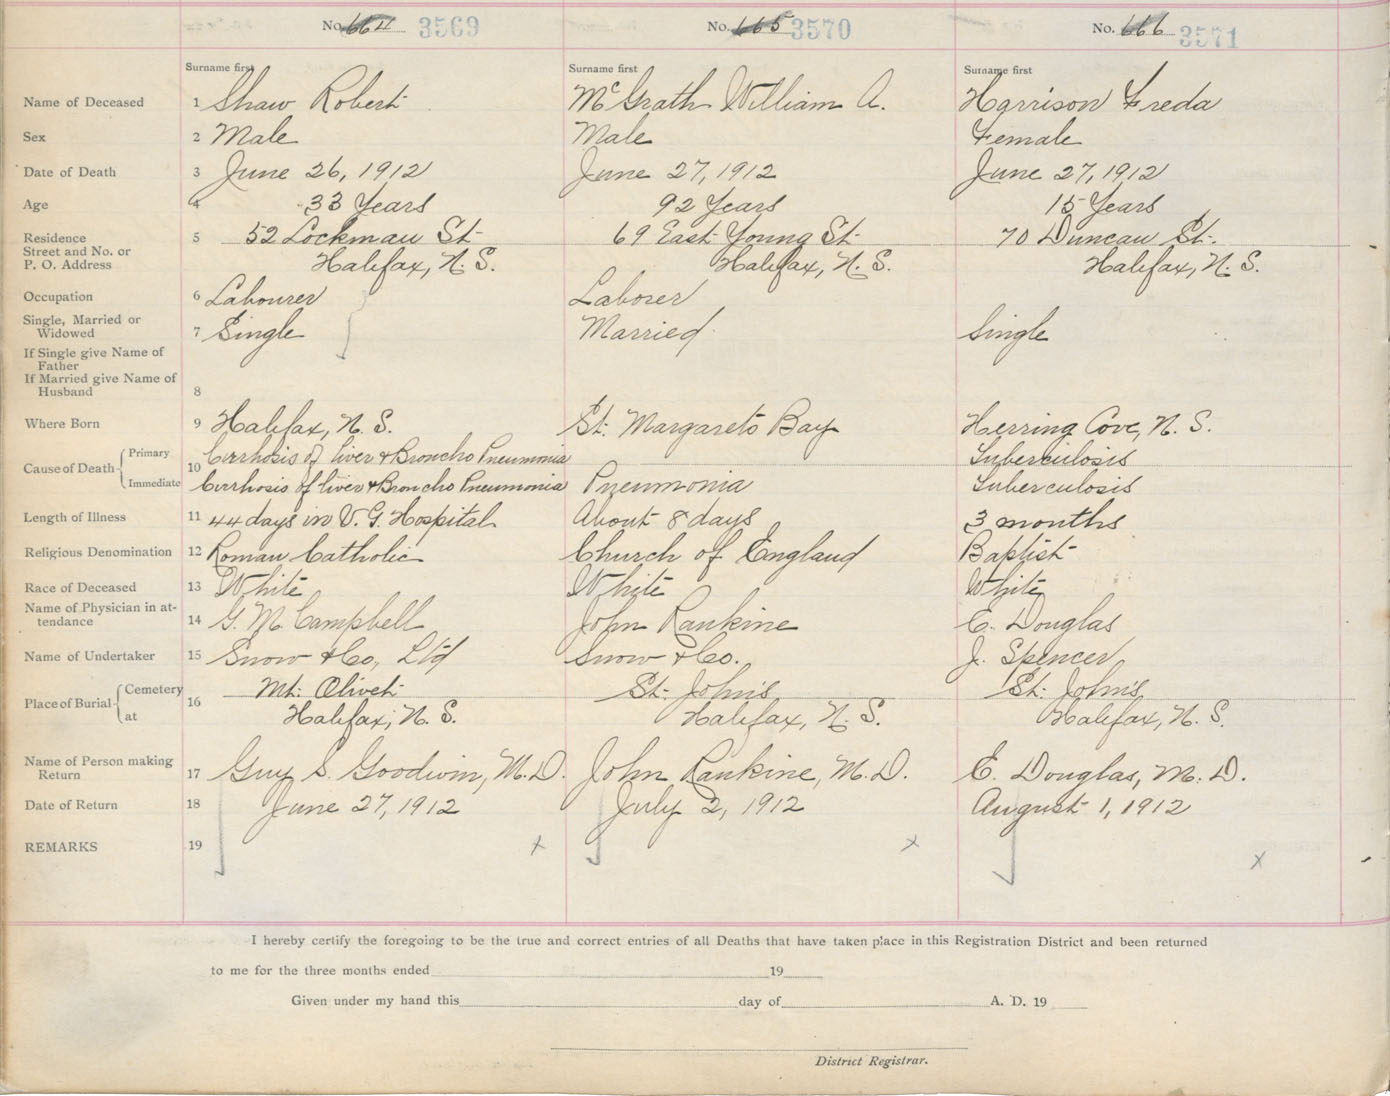 No. 664 3569 No. 665 3570 No. 666 3571
Surname first Surname first Surname first
Name of Deceased 1 Shaw Robert McGrath William A. Harrison Freda
Sex 2 Male Male Female
Date of Death 3 June 26, 1912 June 27, 1912 June 27, 1912
Age 4 33 Years 92 Years 15 Years
Residence 5 52 Lockman St. 69 East Young St. 70 Duncan St.
Street and No. or
P. O. Address Halifax, N. S. Halifax, N. S. Halifax, N. S.
Occupation 6 Labourer Laborer
Single, Married or
Widowed 7 Single Married Single
If Single give Name of
Father
If Married give Name of
Husband 8
Where Born 9 Halifax, N. S. St. Margarets Bay Herring Cove, N. S.
Cause of Death Primary 10 Cirrhosis of liver & Broncho Pneumonia Tuberculosis
Immediate Cirrhosis of liver & Broncho Pneumonia Pneumonia Tuberculosis
Length of Illness 11 44 days in V. G. Hospital About 8 days 3 months
Religious Denomination 12 Roman Catholic Church of England Baptist
Race of Deceased 13 White White White
Name of Physician in at-
tendance 14 G. M. Campbell John Rankine E. Douglas
Name of Undertaker 15 Snow & Co., Ltd Snow & Co. J. Spencer
Place of Burial Cemetery 16 Mt. Olivet St. John's St. John's
at Halifax, N. S. Halifax, N. S. Halifax, N. S.
Name of Person making
Return 17 Guy S. Goodwin, M.D. John Rankine, M.D. E. Douglas, M.D.
Date of Return 18 June 27, 1912 July 2, 1912 August 1, 1912
REMARKS 19 x x x
I hereby certify the foregoing to be the true and correct entries of all Deaths that have taken place in this Registration District and been returned
to me for the three months ended 19
Given under my hand this day of A. D. 19
District Registrar.